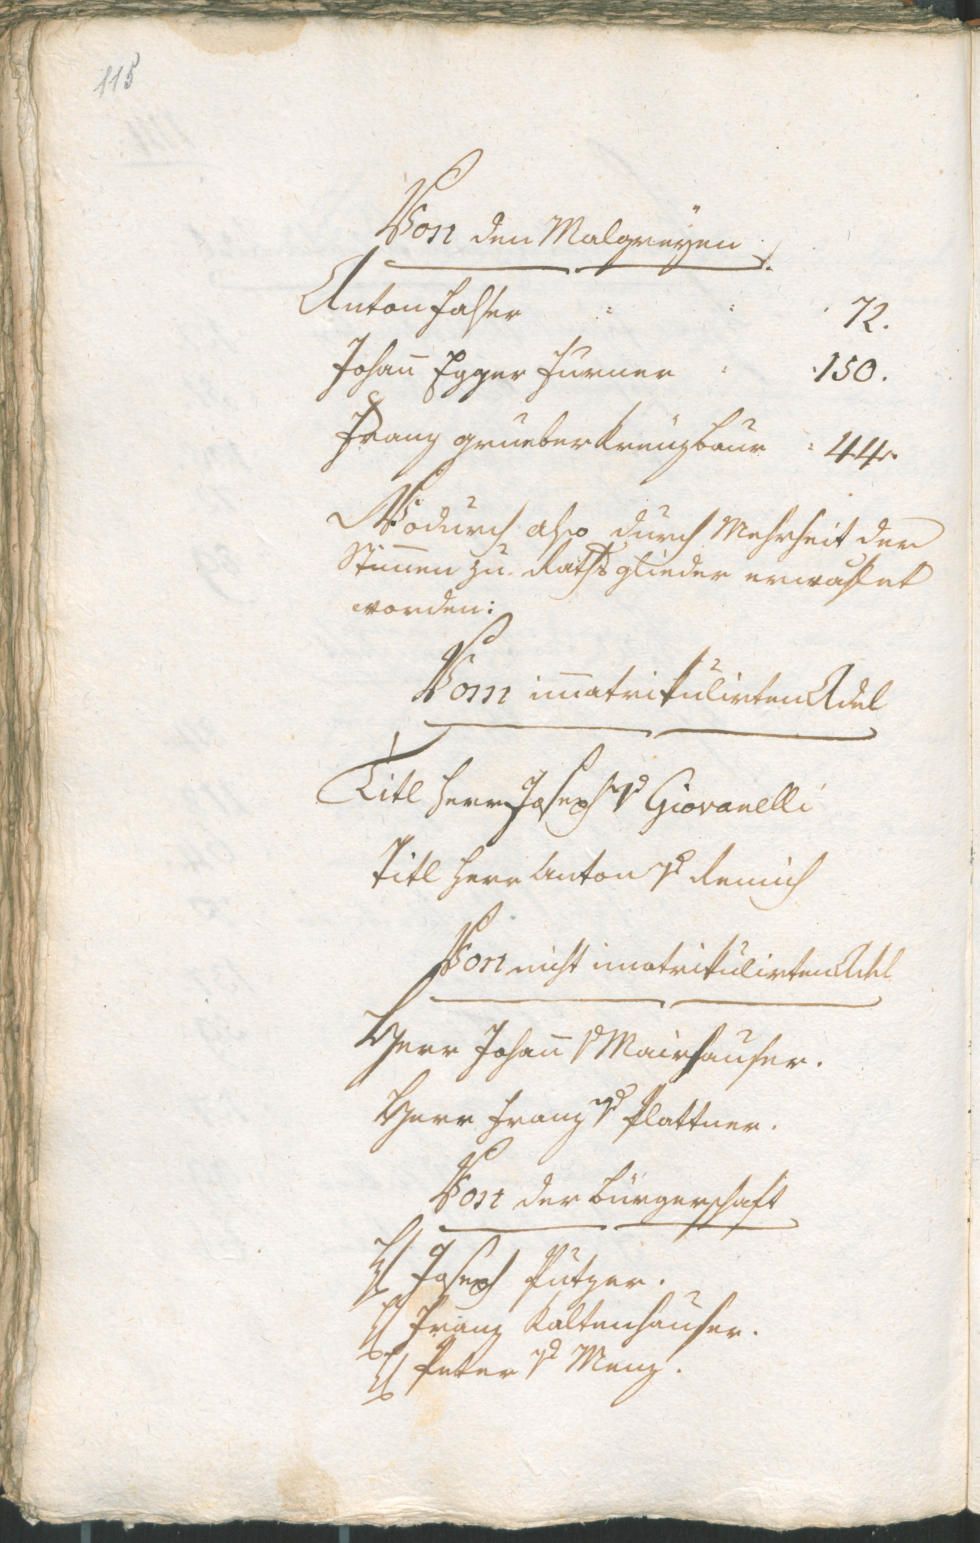 115
Von den Malgreÿen
Anton Falser : : : 72.
Johan̅ Egger Furner : : 150.
Franz grueber Kreuzbaur : 44.
Wodurch also durch Mehrheit der
Stim̅en zu Rathsglieder erwählet
worden:
Vom im̅atrikulirten Adel
Titl Herr Joseph v Giovanelli
Titl Herr Anton v Remich
Von nicht imatrikulirten Adel
Herr Johan̅ v Mairhauser.
Herr Franz v Plattner.
Von der Bürgerschaft
H Joseph Putzer.
H Franz Kaltenhauser.
H Peter v Menz.